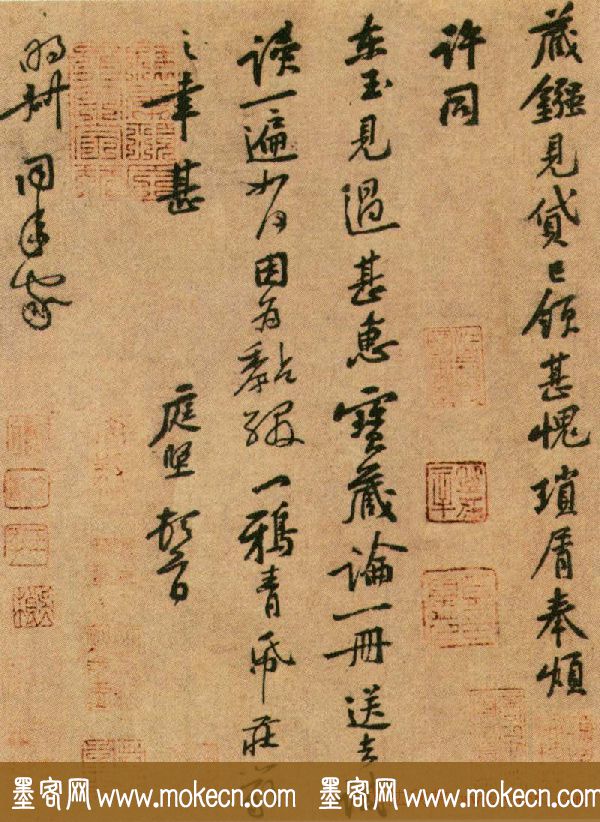 藏鏹見貸已領甚愧瑣屑奉煩
許同
東玉見過甚惠寶藏論一冊送去
讀一遍如何因為黏綴一鴉青帋莊
之幸甚 庭堅頓首
明叔同年家
墨客网 www.mokecn.com 墨客网 www.mokecn.com